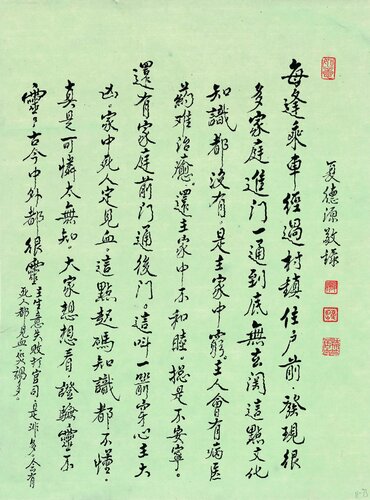 每逢乘車經過村鎮住戶前發現很
多家庭進門一通到底無玄関這點文化
知識都沒有是主家中窮。主人會有病医
药难治癒。還主家中不和睦。總是不安寧。
還有家庭前門通後門。這叫一箭穿心主大
凶。家中死人定見血這點起碼知識都不懂。
真是可憐太無知。大家想想看證驗靈。不
靈。古今中外都很靈
主生意失敗打官司是非多会有
死人都見血災禍多。
夏德源敬錄